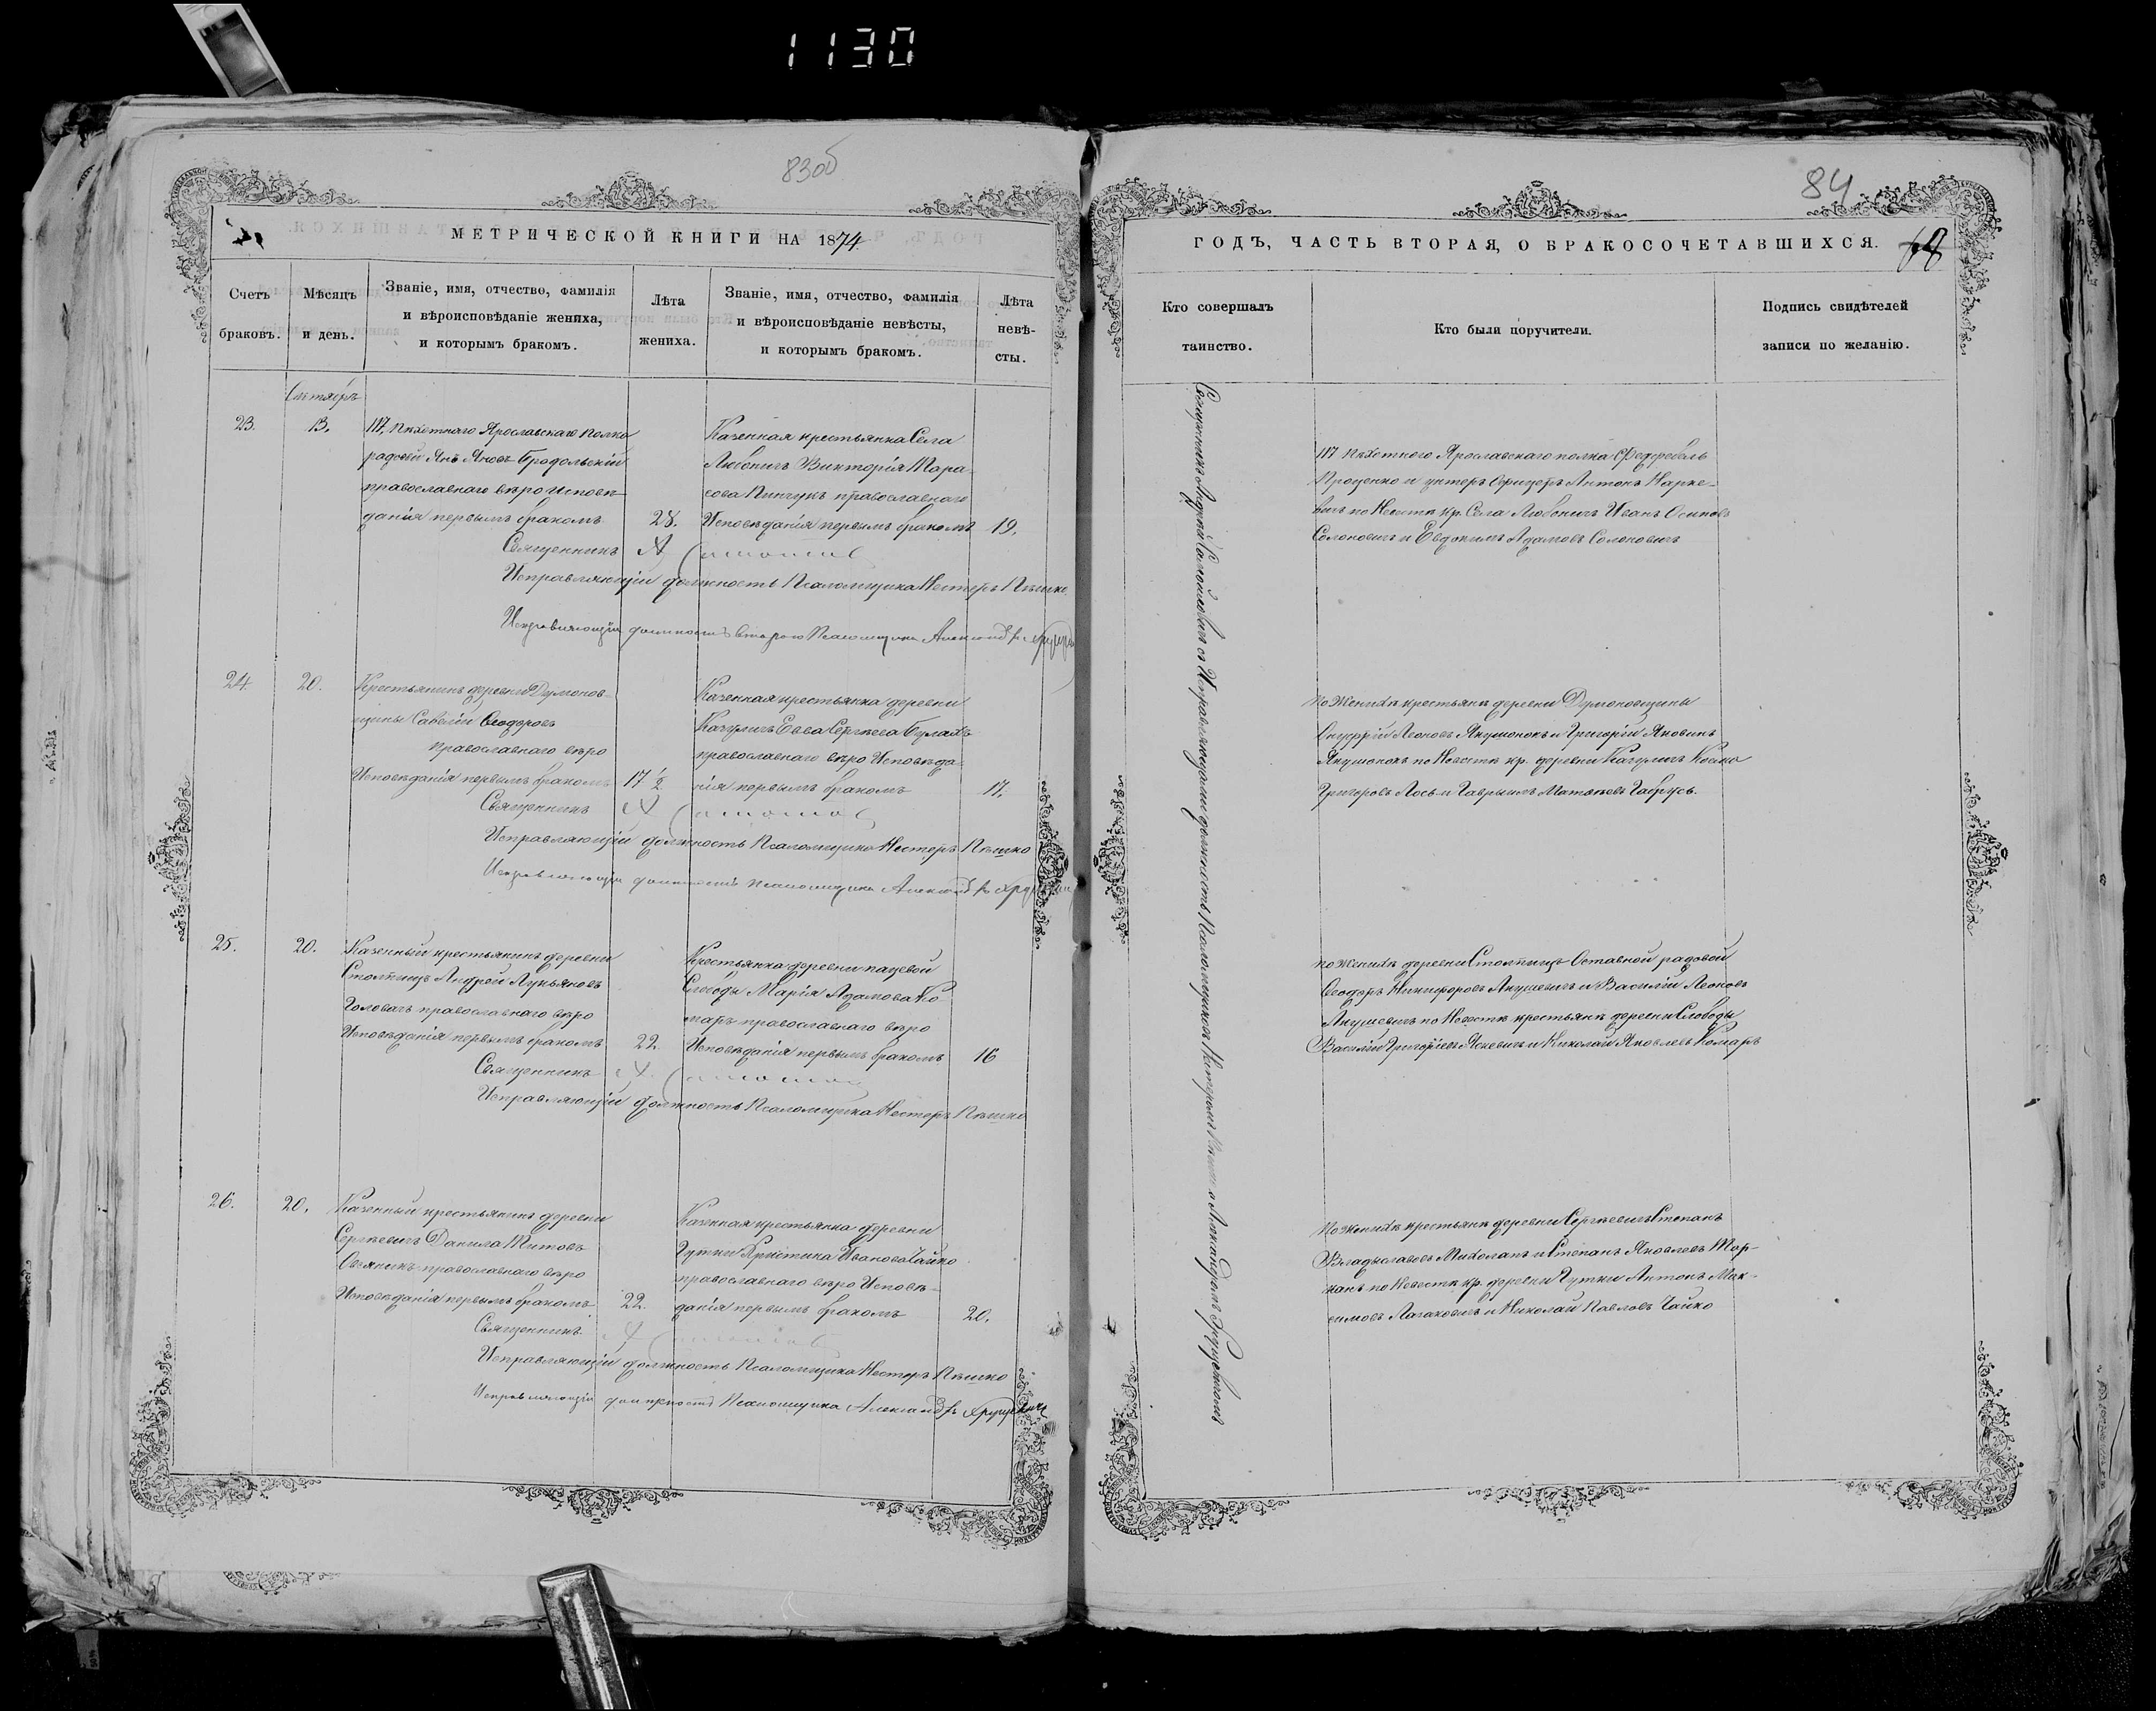 1130
83об
МЕТРИЧЕСКОЙ КНИГИ НА 1874
Счетъ браковъ.
Мѣсяцъ и день.
Званіе, имя, отчество, фамилія и вѣроисповѣданіе жениха, и которымъ бракомъ.
Лѣта жениха.
Званіе, имя, отчество, фамилія и вѣроисповѣданіе невѣсты, и которымъ бракомъ.
Лѣта невѣ-сты.
23.
13.
117, Пѣхотнаго Ярославскаго полка
радовій Янъ Яновъ
православнаго вѣро исповѣ-
данія первымъ бракомъ
28.
Казенная крестьянка Села
Любоничъ Викторія Тара-
сова Пинчукъ православнаго
Исповѣданія первымъ бракомъ
19.
Священникъ А
Исправляющій должность Псаломщика Нестеръ
Исправляющій должность втораго Псаломщика Александръ
24.
20.
Крестьянинъ деревни Думанов-
щины Савелій Ѳеодоровъ
православнаго вѣро
Исповѣданія первымъ бракомъ
17 1/2
Казенная крестьянка деревни
Качуличъ Евва Сергѣева Булахъ
православнаго вѣро Исповѣда-
нія первымъ бракомъ
17.
Священникъ А
Исправляющій должность Псаломщика Нестеръ
Исправляющій должность Псаломщика Александръ
25.
20.
Казенный крестьянинъ деревни
Столпищъ Андрей Лукьяновъ
Головачъ православнаго вѣро
Исповѣданія первымъ бракомъ
22.
Крестьянка деревни
Слободы Марія Адамова Ко-
маръ православнаго вѣро
Исповѣданія первымъ бракомъ
16
Священникъ А.
Исправляющій должность Псаломщика Нестеръ
26.
20.
Казенный крестьянинъ деревни
Сергѣевичъ Данила Титовъ
Овсяникъ православнаго вѣро
Исповѣданія первымъ бракомъ
22.
Казенная крестьянка деревни
Гутки Христина Иванова Чайко
православнаго вѣро Исповѣ-
данія первымъ бракомъ
20.
Священникъ
Исправляющій должность Псаломщика Несторъ
Исправляющій должность Псаломщика Александръ
84
ГОДЪ, ЧАСТЬ ВТОРАЯ, О БРАКОСОЧЕТАВШИХСЯ.
Кто совершалъ таинство.
Кто были поручители.
Подпись свидѣтелей записи по желанію.
Священникъ Андрей съ Исправляющими должность Псаломщиковъ Нестеромъ и Александромъ
117 Пѣхотнаго Ярославскаго полка Фелдфебель
Проценко и унтеръ Офицеръ Антонъ Нарке-
вичъ по Невѣстѣ кр. Села Любоничъ Иванъ Осиповъ
Солоновичъ и Евдокимъ Адамовъ Солоновичъ
по Женихѣ крестьяне деревни Думановщины
Леоновъ Якушонокъ и Григорій Яковинъ
Якушонокъ по Невѣстѣ кр. деревни Качуличъ Косма
Григоровъ Лось и Гаврыилъ Матвѣевъ Габрусь.
по Женихѣ деревни Столпищъ Оставной радовой
Ѳеодоръ Никифоровъ Якушевичъ и Василій Леоновъ
Якушевичъ по Невѣстѣ крестьяне деревни Слободы
Василій Григорьевъ Яскевичъ и Николай Яковлевъ Комаръ
По Женихѣ крестьяне деревни Сергѣевичъ Степанъ
Владыславовъ и Степанъ Яковлевъ
по Невѣстѣ кр. деревни Гутки Антонъ Мак-
симовъ и Николай Павловъ Чайко